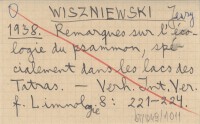 O WISZNIEWSKI Jerzy
1938. Remarques sur l'éco-
logie du psammon, spé-
cialement dans les lacs des
Tatras. — Verh. Int. Ver.
f. Limnologie 8: 221-224.